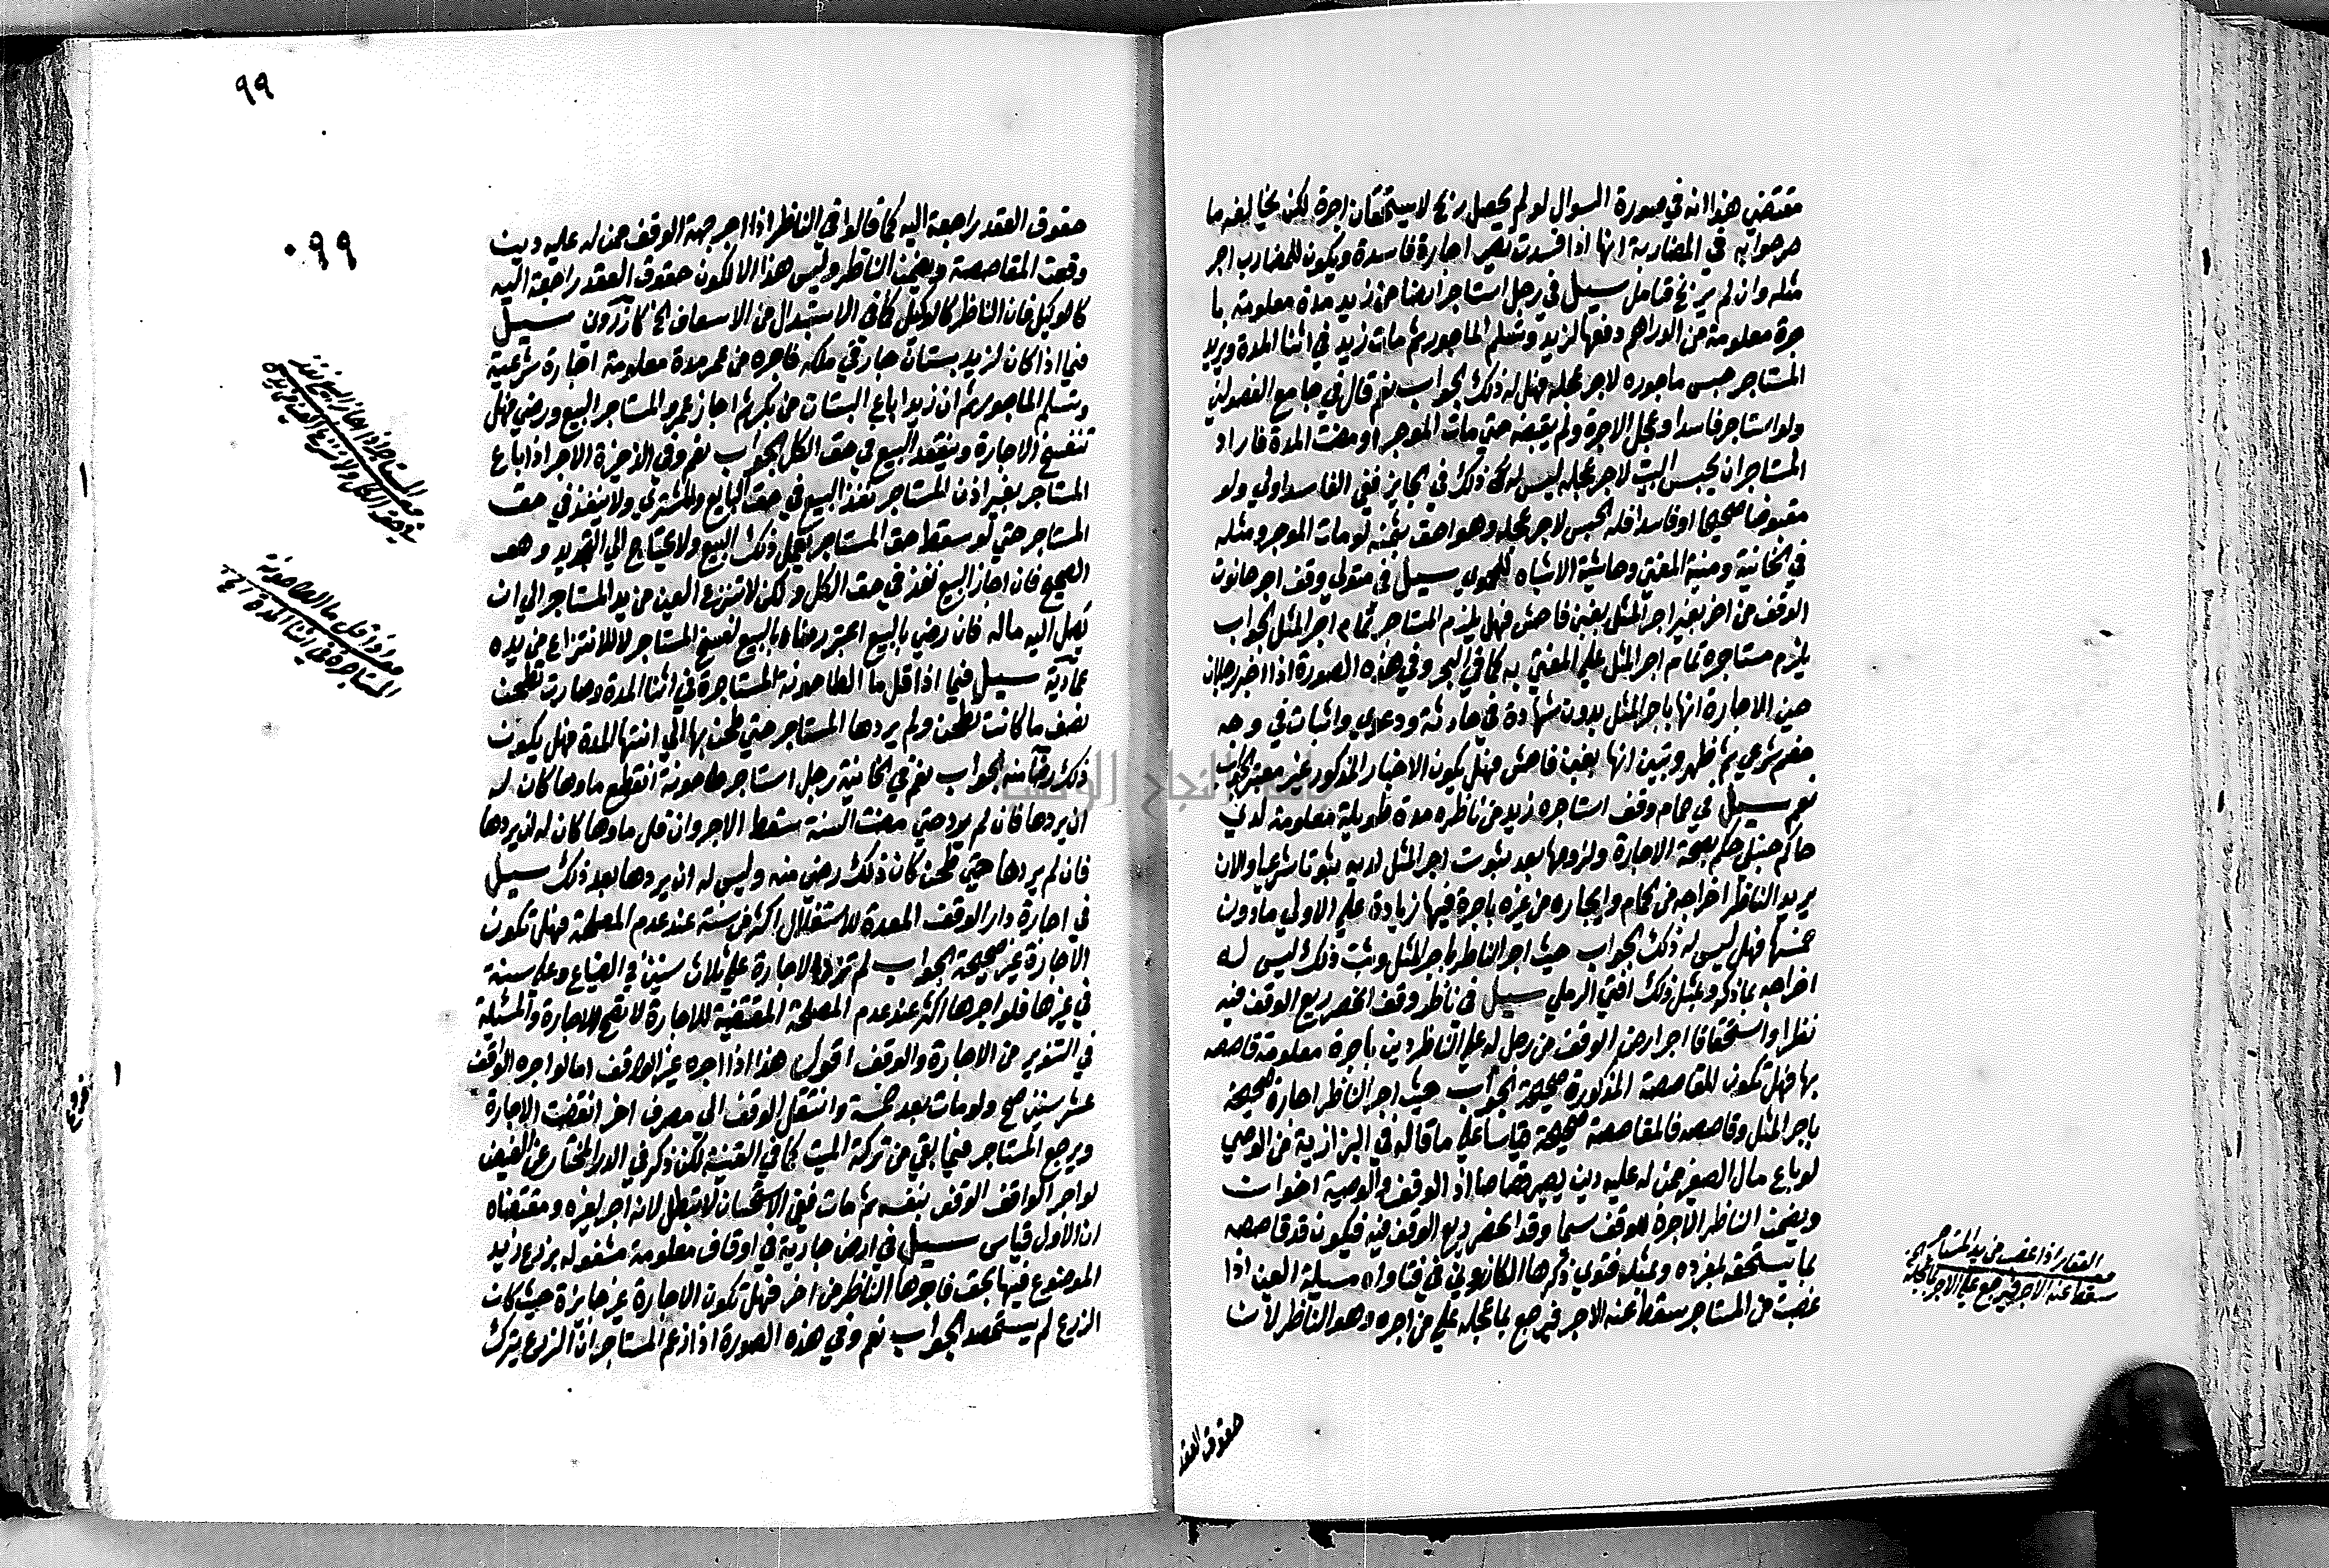 مقتضي هذا انه في صورة السوال لو لم يحصل ربح لا يستحقان اجرة لكن يخالفه ما
صرحوا به في المضاربة انها اذا فسدت تصير اجارة فاسدة ويكون للمضارب اجر
مثله وان لم يربح فتامل سيل في رجل استاجر ارضا من زيد مدة معلومة با
جرة معلومة من الدراهم دفعها لزيد وتسلم الماجور ثم مات زيد في اثنا المدة ويريد
المستاجر حبس ماجوره لاجر عجله فهل له ذلك الجواب نعم قال في جامع الفصولين
ولو استاجر فاسدا وعجل الاجرة ولم يقبضه حتي مات الموجر او مضت المدة فاراد
المستاجر ان يحبس البيت لاجر عجله ليس له ذلك في الجايز ففي الفاسد اولي ولو
مقبوضا صحيحا او فاسدا فله الحبس لاجر عجله وهو احق بثمنه لو مات الموجر ومثله
في الخانية ومنية المفتي وحاشية الاشباه للحموي سيل في متولي وقف اجر حانوت
الوقف من اخر بغير اجر المثل بغبن فاحش فهل يلزم المستاجر تمام اجر المثل الجواب
يلزم مستاجره تمام اجر المثل علي المفتي به كما في البحر وفي هذه الصورة اذا اخبر رجلان
حين الاجارة انها باجر المثل بدون شهادة في حادثة ودعوي واثبات في وجه
خصم شرعي ثم ظهر وتبين انها بغبن فاحش فهل يكون الاخبار المذكور غير معتبر الجواب
نعم سيل في حمام وقف استاجره زيد من ناظره مدة طويلة معلومة لدي
حاكم حنبلي حكم بصحة الاجارة ولزومها بعد ثبوت اجر المثل لديه ثبوتا شرعيا والان
يريد الناظر اخراجه من الحمام وايجاره من غيره باجرة فيها زيادة علي الاولي ما دون
خمسها فهل ليس له ذلك الجواب حيث اجر الناظر باجر المثل وثبت ذلك ليس له
اخراجه بما ذكر وبمثل ذلك افتي الرملي سيل في ناظر وقف انحصر ريع الوقف فيه
نظرا واستحقاقا اجر ارض الوقف من رجل له علي الناظر دين باجرة معلومة قاصصه
بها فهل تكون المقاصصة المذكورة صحيحة الجواب حيث اجر الناظر اجارة صحيحة
باجر المثل وقاصصه فالمقاصصة صحيحة قياسا علي ما قاله في البزازية من الوصي
لو باع مال الصغير ممن له عليه دين يصير قصاصا اذ الوقف والوصية اخوات
ويضمن الناظر الاجرة للوقف سيما وقد انحصر ريع الوقف فيه فيكون قد قاصصه
بما يستحقه بمفرده وبمثله فتوي ذكرها الكازروني في فتاواه مسيلة العين اذا
غصبت من المستاجر سقط عنه الاجر فيرجع بما عجله علي من اجره وهو الناظر لان
العقار اذا غصب من يد المستاجر
سقط عنه الاجر فيرجع علي الاجر بما عجله
حقوق العقد
٩٩
٠٩٩
حقوق العقد راجعة اليه كما قالوا في الناظر اذا اجر جهة الوقف ممن له عليه دين
وقعت المقاصصة ويضمن الناظر وليس هذا الا لكون حقوق العقد راجعة اليه
كالوكيل فان الناظر كالوكيل كما في الاستبدال من الاسعاف الخ كازروني سيل
فيما اذا كان لزيد بستان جار في ملكه فاجره من عمر مدة معلومة اجارة شرعية
وتسلم الماجور ثم ان زيدا باع البستان من بكر ثم اجاز عمرو المستاجر البيع ورضي فهل
تنفسخ الاجارة وينفذ البيع في حق الكل الجواب نعم وفي الذخيرة الاجر اذا باع
المستاجر بغير اذن المستاجر نفذ البيع في حق البايع والمشتري ولا ينفذ في حق
المستاجر حتي لو سقط حق المستاجر يعمل ذلك البيع ولا يحتاج الي التجديد وهو
الصحيح فان اجاز البيع نفذ في حق الكل ولكن لا تنزع العين من يد المستاجر الي ان
يصل اليه ماله فان رضي بالبيع اعتبر رضاه بالبيع لفسخ المستاجر لا للانتزاع من يده
عمادية سيل فيما اذا قل ما الطاحونة المستاجرة في اثنا المدة وصارت تطحن
نصف ما كانت تطحن ولم يردها المستاجر حتي طحن بها الي انتها المدة فهل يكون
ذلك رضا منه الجواب نعم في الخانية رجل استاجر طاحونة انقطع ماوها كان له
ان يردها فان لم يرد حتي مضت السنة سقط الاجر وان قل ماوها كان له ان يردها
فان لم يردها حتي طحن كان ذلك رضي منه وليس له ان يردها بعد ذلك سيل
في اجارة دار الوقف المعدة للاستغلال اكثر من سنة عند عدم المصلحة فهل تكون
الاجارة غير صحيحة الجواب لم تزد الاجارة علي ثلاث سنين في الضياع وعلي سنة
في غيرها فلو اجرها اكثر عند عدم المصلحة المقتضية للاجارة لا تصح الاجارة والمسئلة
في التنوير من الاجارة والوقف اقول هذا اذا اجره غير الواقف اما لو اجره الواقف
عشر سنين صح ولو مات بعد خمسة وانتقل الوقف الي مصرف اخر انقضت الاجارة
ويرجع المستاجر فيما بقي من تركة الميت كما في القنية لكن ذكر في الدر المختار عن الفيض
لو اجر الواقف الوقف بنفسه ثم مات ففي الاستحسان لا تبطل لانه اجر لغيره ومقتضاه
ان الاول قياس سيل في ارض جارية في اوقاف معلومة مشغوله بزرع زيد
الموضوع فيها بحق فاجرها الناظر من اخر فهل تكون الاجارة غير جايزة حيث كان
الزرع لم يستحصد الجواب نعم وفي هذه الصورة اذا زعم المستاجر ان الزرع يترك
المستاجر اذا اجاز البيع نفذ
في حق الكل ولا تنزع العين من يده
اذا قل ما الطاحونة
المستاجرة في اثنا المدة الخ